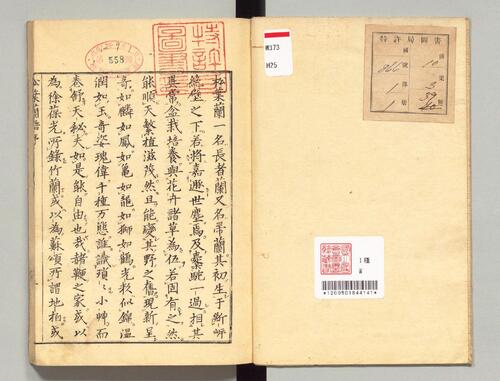 松葉蘭一名長者蘭又名帚蘭其初生于斷岬
絶壁之下若將嘉遯世塵焉及橐駝一過相其
異常盆栽培養與花卉諸草為伍若固有之然
能順天繁植滋茂然且能變其野之舊現新呈
奇如麟如鳳如龜如龍如獅如鶴光彩似錦温
潤如玉奇姿瑰偉千種万態誰識瑣小艸而
卷舒天秘夫如是能自由也哉諸鞭之家或以
為徐葆光所錄竹蘭或以為蘇頌所謂地柏或
松葉蘭譜序
特許局圖書
558
W373
H25
特許局圖書
国
1
1
*1200901844141*